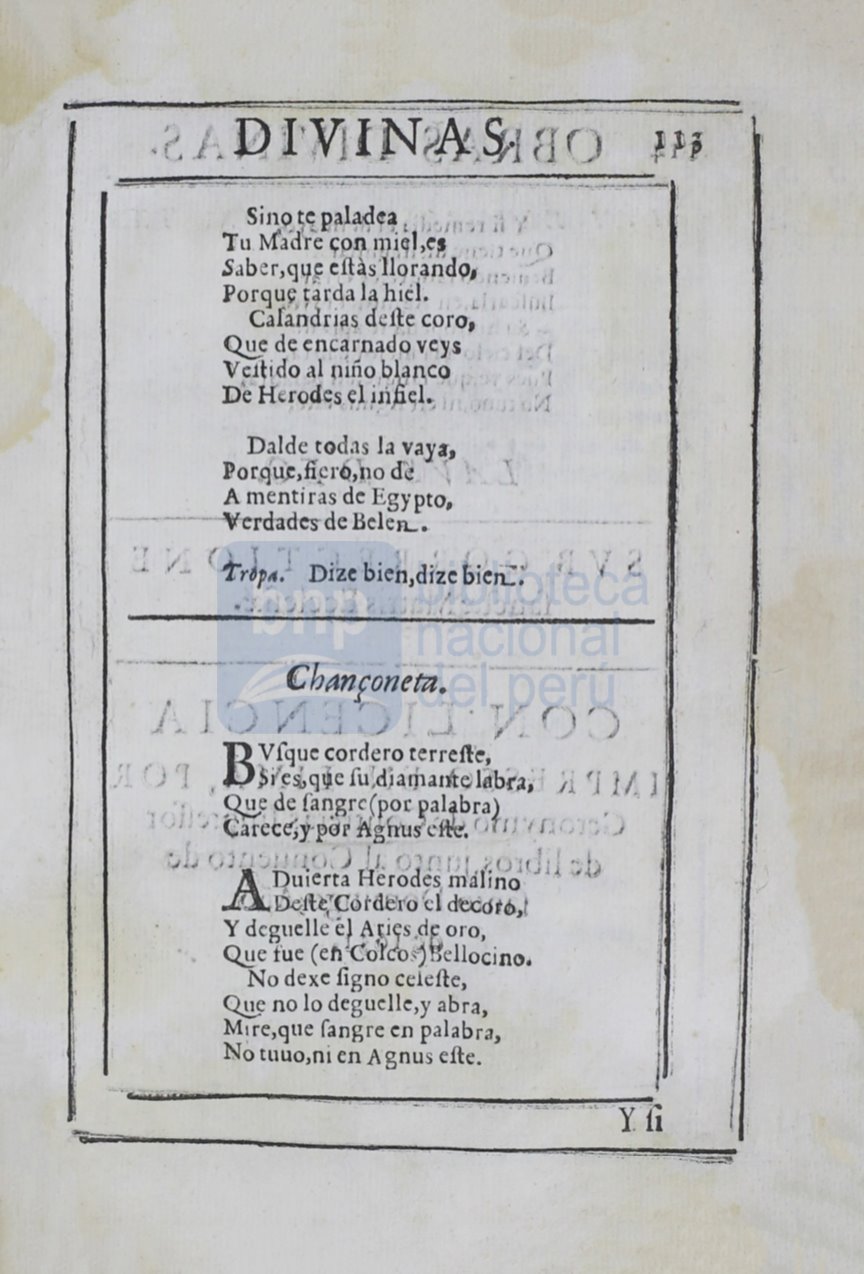 DIVINAS.
113
Sino te paladea
Tu Madre con miel,es
Saber,que eſtàs llorando,
Porque tarda la hiel.
Calandrias deſte coro,
Que de encarnado veys
Veſtido al niño blanco
De Herodes el infiel.
Dalde todas la vaya,
Porque,fiero,no de
A mentiras de Egypto,
Verdades de Belen.
Tropa. Dize bien,dize bien.
bnp biblioteca
nacional
del perú
Chançoneta.
BVſque cordero terreſte,
Si es,que ſu diamante labra,
Que de ſangre(por palabra)
Carece,y por Agnus eſte.
ADuierta Herodes malino
Deſte Cordero el decoro,
Y deguelle el Aries de oro,
Que fue (en Colcos)Bellocino.
No dexe ſigno celeſte,
Que no lo deguelle,y abra,
Mire,que ſangre en palabra,
No tuuo,ni en Agnus eſte.
Y ſi